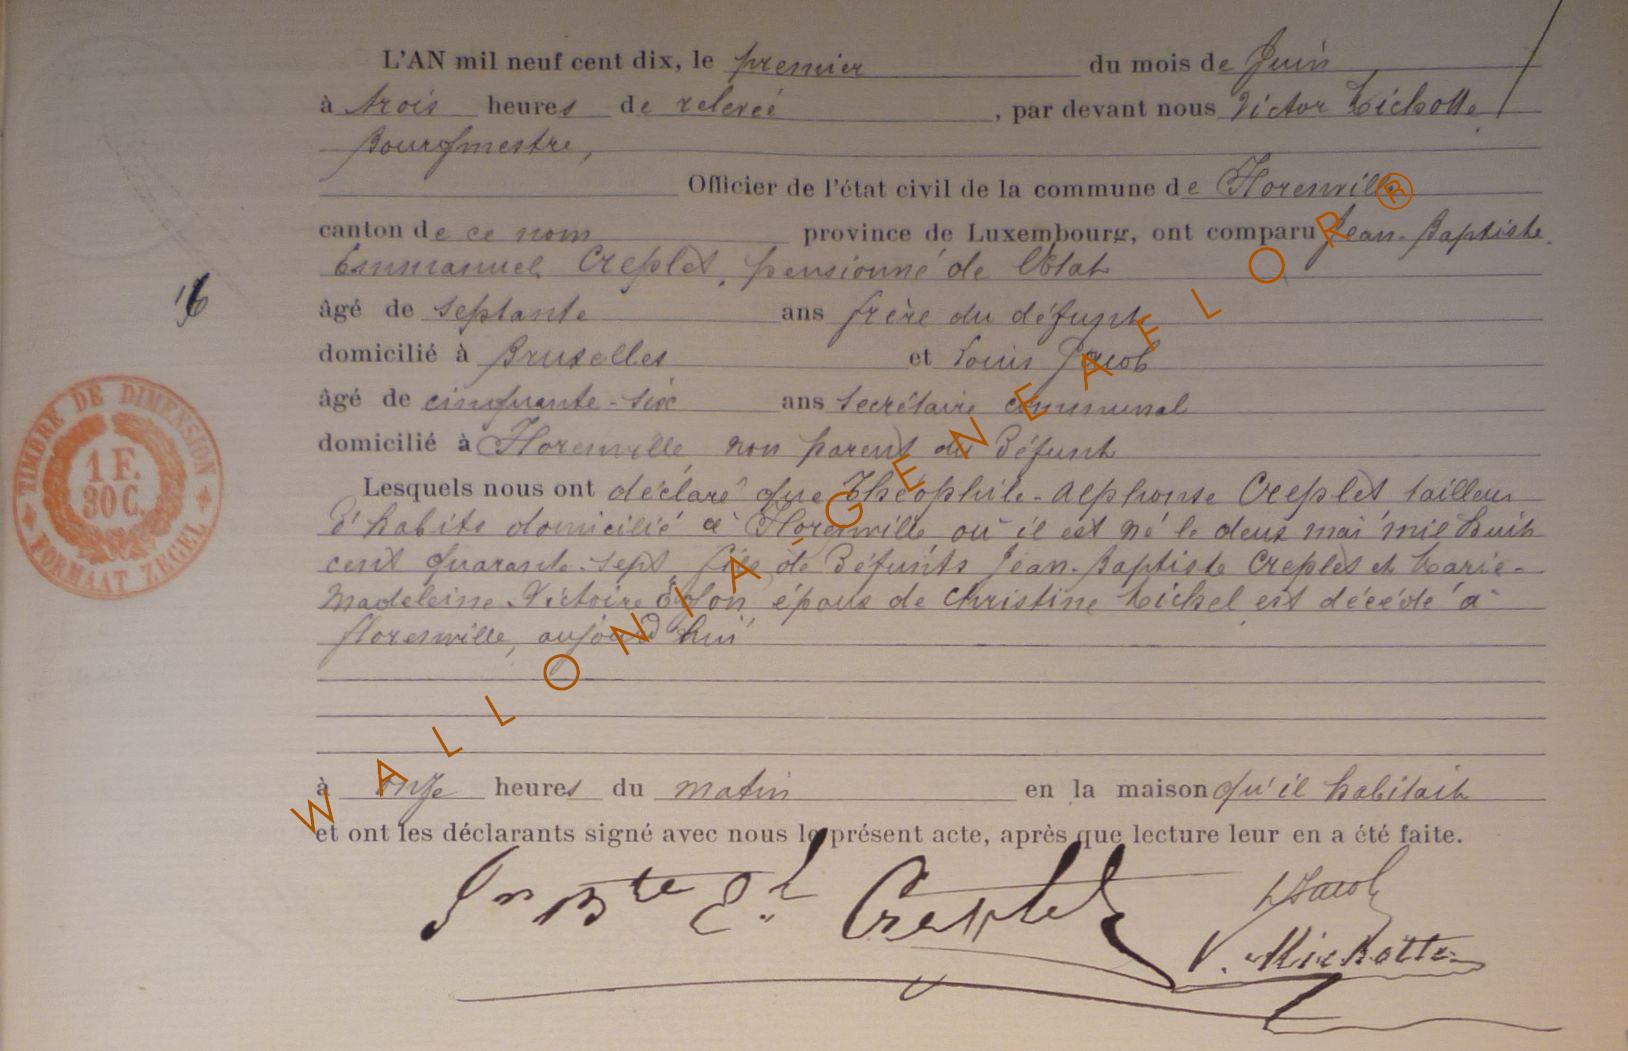 L'AN mil neuf cent dix, le premier du mois de Juin
à trois heures de relevée, par devant nous Victor Michotte,
Bourgmestre,
Officier de l'état civil de la commune de Florenville
canton de ce nom province de Luxembourg, ont comparu Jean-Baptiste
Emmanuel Creplet, pensionné de l'Etat
16
âgé de septante ans frère du défunt
domicilié à Bruxelles et Louis Jacob
âgé de cinquante-six ans secrétaire communal
domicilié à Florenville non parent du Défunt
Lesquels nous ont déclaré que Théophile-Alphonse Creplet tailleur
d'habits domicilié à Florenville où il est né le deux mai mil huit
cent quarante-sept fils de Défunts Jean-Baptiste Creplet et Marie-
Madeleine-Victoire époux de Christine Michel est décédé à
florenville, aujourd'hui
à onze heures du matin en la maison qu'il habitait
et ont les déclarants signé avec nous le présent acte, après que lecture leur en a été faite.
Jn Bte El Creplet
L Jacob
V. Michotte
TIMBRE DE DIMENSION
1 F.
30 C.
FORMAAT ZEGEL
WALLONIA-GENEAFLOR®